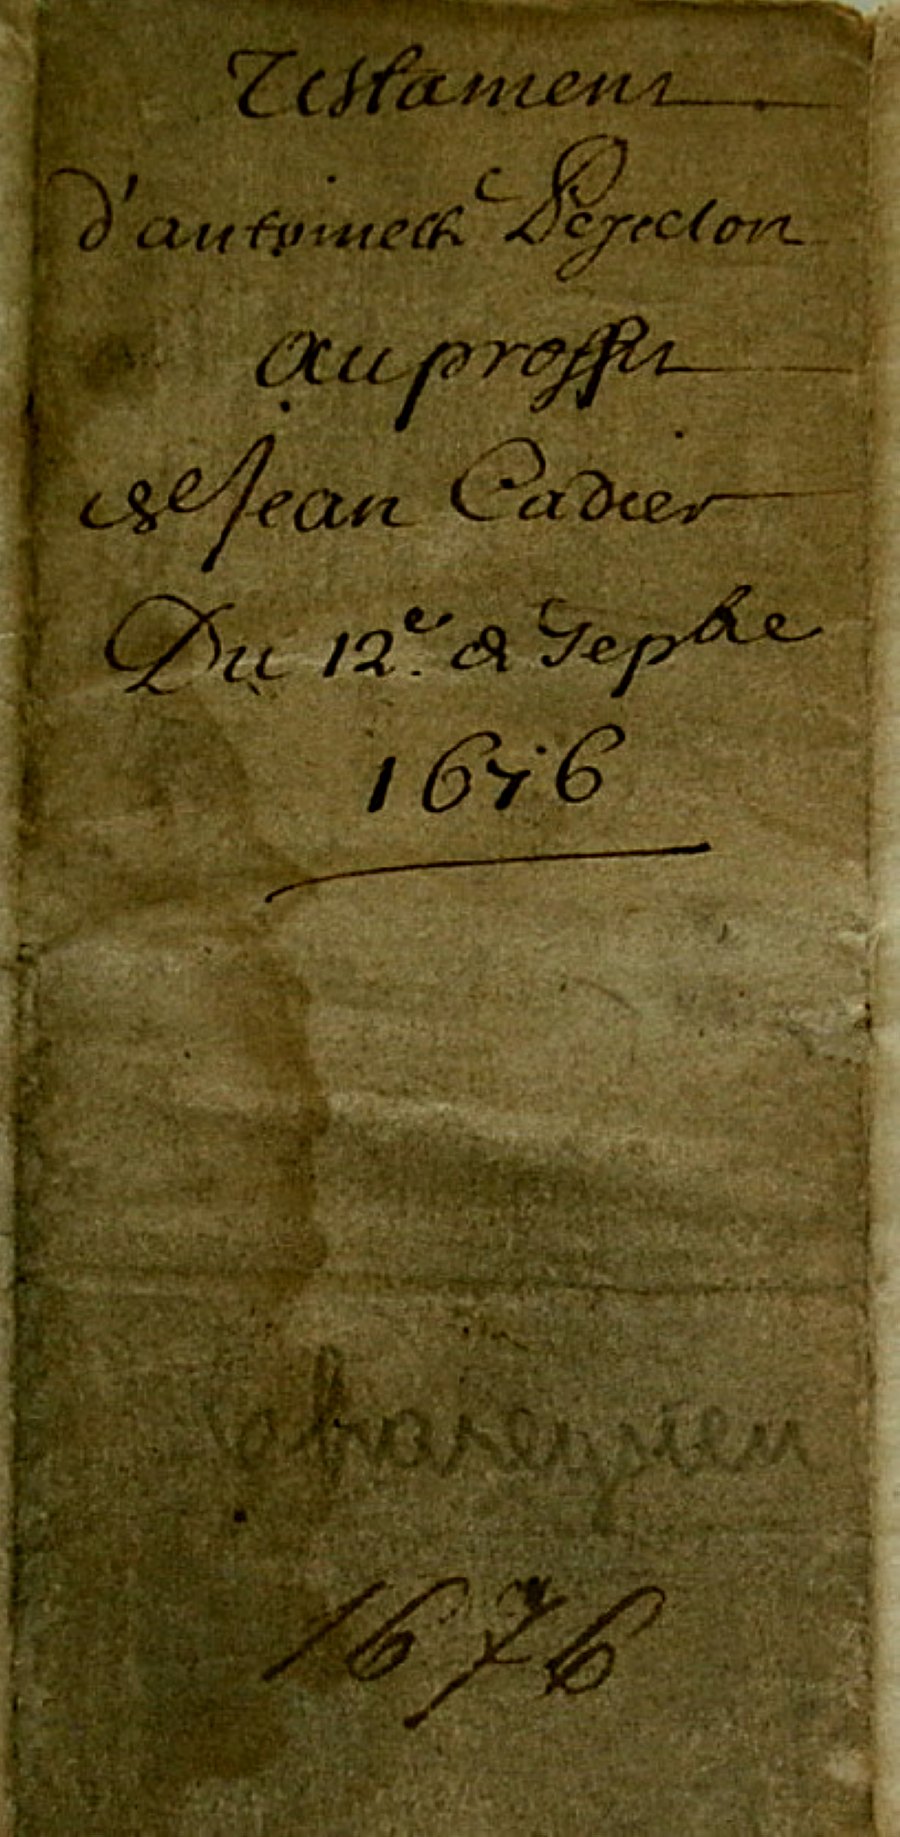 Testament
d'antoinette
au proffit
de Jean Cadier
Du 12e. de Sepbre
1676
1676